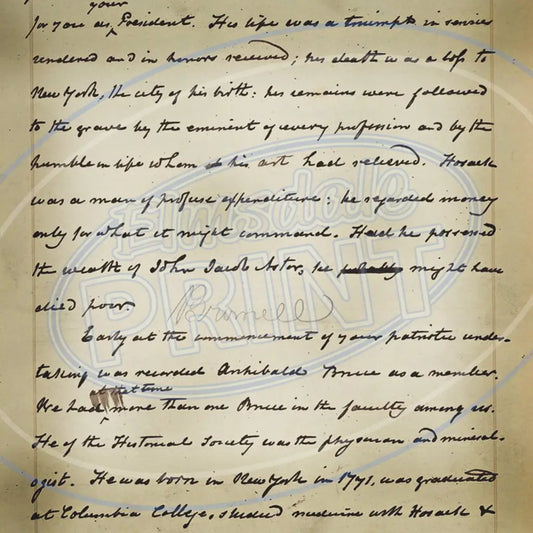 your
for you as President. His life was a triumph in services
rendered and in honors received; his death was a loss to
New York, the city of his birth: his remains were followed
to the grave by the eminent of every profession and by the
humble in life whom his art had relieved. Hosack
was a man of profuse expenditure: he regarded money
only for what it might command. Had he possessed
the wealth of John Jacob Astor, he probably might have
died poor.
Early at the commencement of your patriotic under-
taking was recorded Archibald Bruce as a member.
at that time
We had more than one Bruce in the faculty among us.
He of the Historical Society was the physician and mineral-
ogist. He was born in New York in 1771, was graduated
at Columbia College, studied medicine with Hosack &
Elmsdale
PRINT